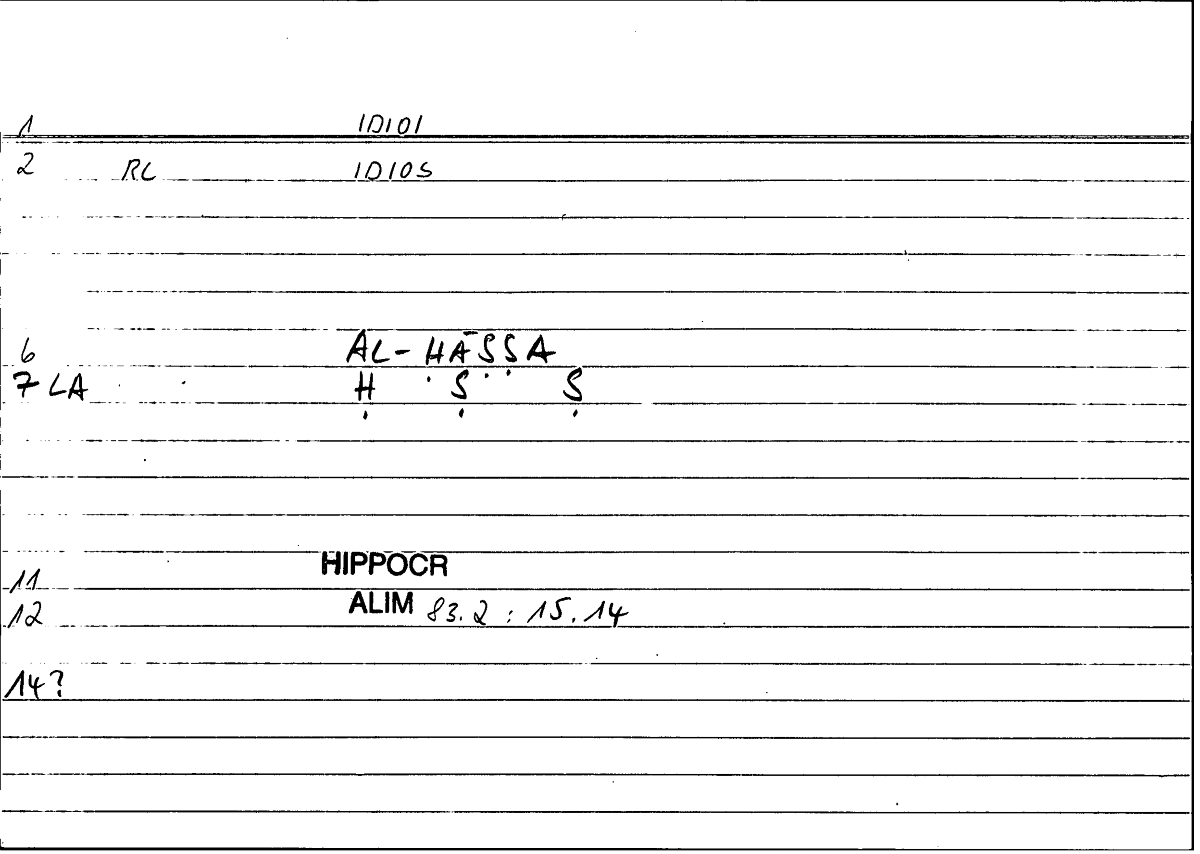 1 IDIOI
2 RL IDIOS
6 AL-ḤĀṢṢA
7 LA Ḥ Ṣ Ṣ
11 HIPPOCR
12 ALIM 83.2 : 15.14
14?